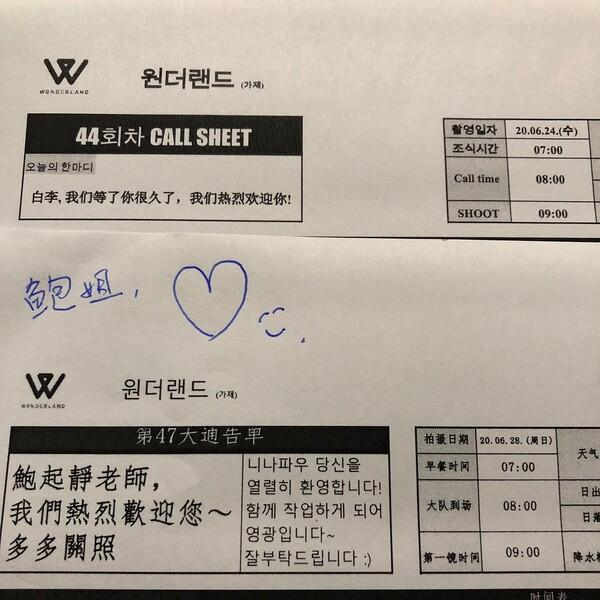 WONDERLAND
원더랜드 (가제)
44회차 CALL SHEET
오늘의 한마디
白李, 我们等了你很久了，我们热烈欢迎你!
撮영일자 20.06.24.(수)
조식시간 07:00
Call time 08:00
SHOOT 09:00
鲍姐，
WONDERLAND
원더랜드 (가제)
第47大通告单
鮑起靜老師，
我們熱烈歡迎您～
多多關照
니나파우 당신을
열렬히 환영합니다!
함께 작업하게 되어
영광입니다~
잘부탁드립니다 :)
拍摄日期 20.06.28.(周日)
早餐时间 07:00
大队到场 08:00
第一镜时间 09:00
天气
日出
日落
降水
时间表